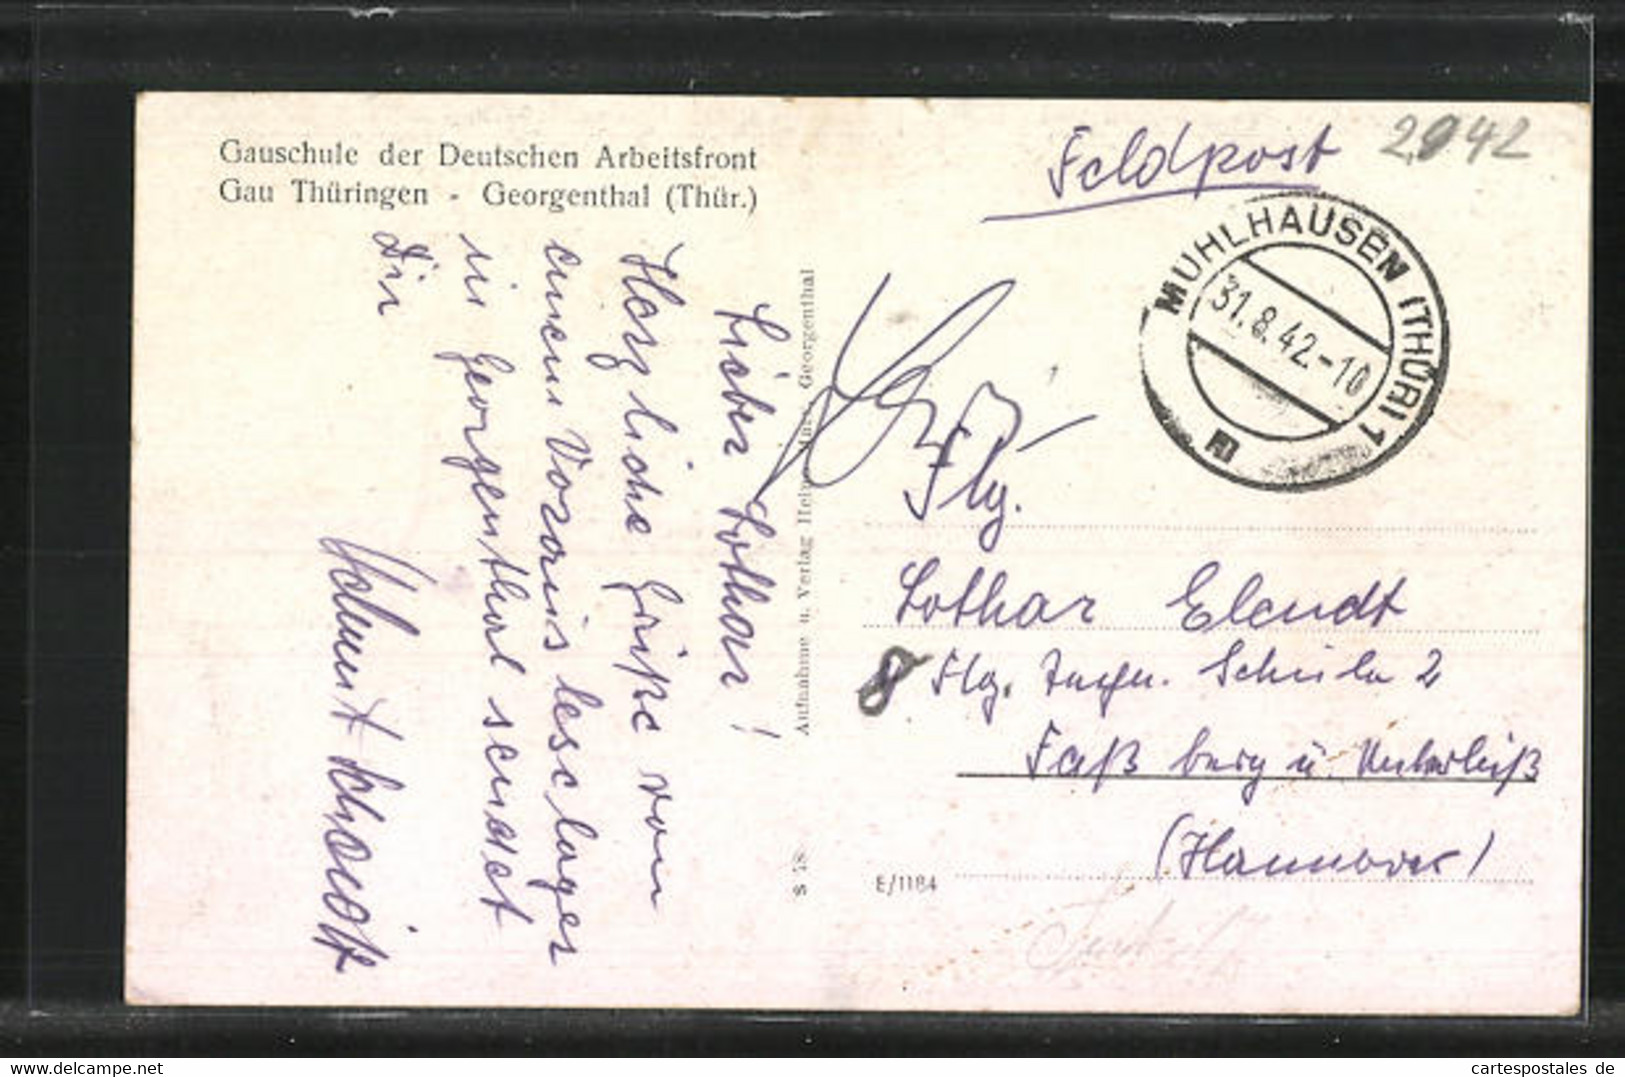 Gauschule der Deutschen Arbeitsfront
Gau Thüringen - Georgenthal (Thür.)
Lieber Lothar!
Herzliche Grüße von
einem Vorausleselager
in Georgenthal sendet
Dir
Helmut Schmidt
Aufnahme u. Verlag Georgenthal
S 18
Feldpost
2942
MÜHLHAUSEN (THÜR) 1
31.8.42.-10
m
Flg.
Lothar Elendt
8 Flg. Schule 2
Faßberg ü. Unterlüß
(Hannover)
E/1184
www.cartespostales.de
cartespostales de